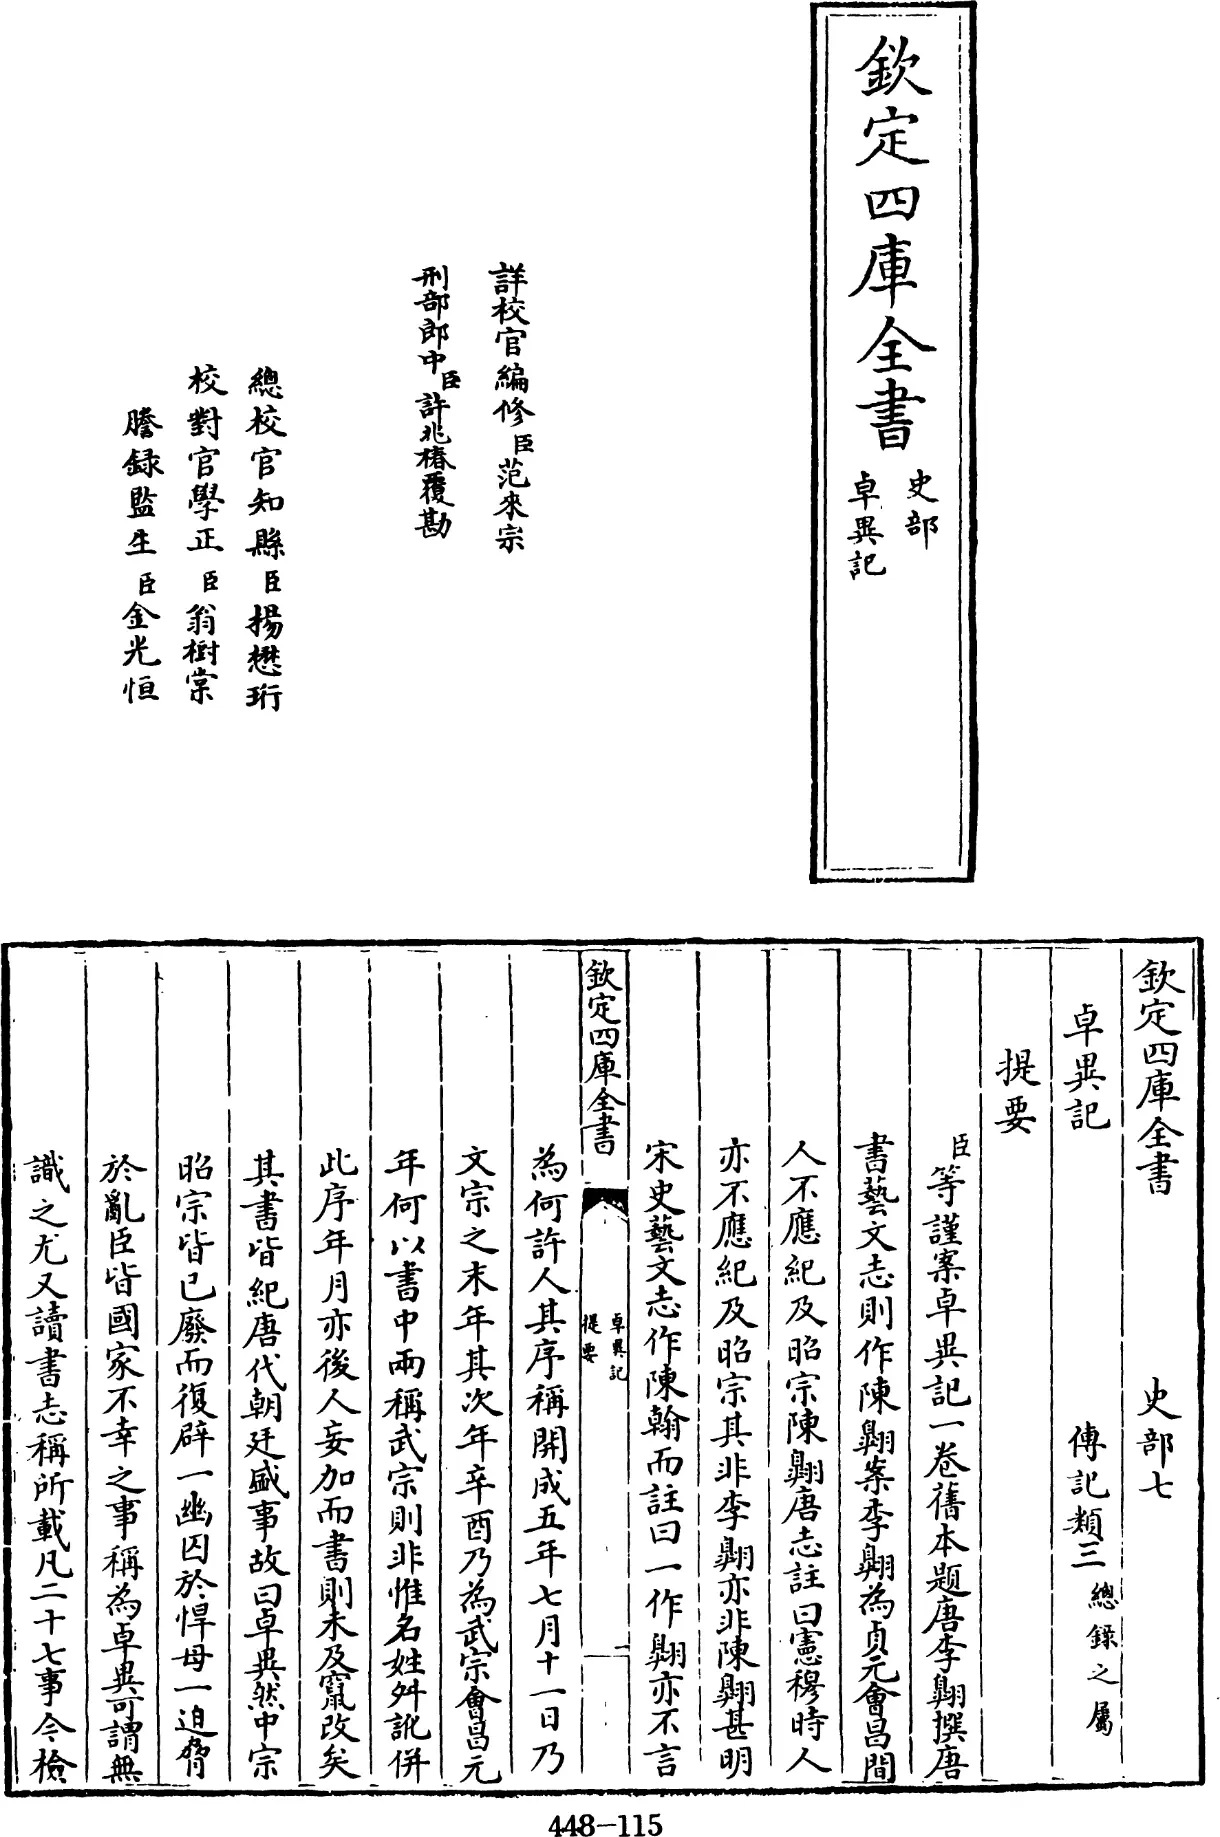 欽定四庫全書
史部
卓異記
詳校官編修臣范來宗
刑部郎中臣許兆椿覆勘
總校官知縣臣楊懋珩
校對官學正臣翁樹棠
謄錄監生臣金光恒
欽定四庫全書 史部七
卓異記 傳記類三 總錄之屬
提要
臣等謹案卓異記一卷舊本題唐李翺撰唐
書藝文志則作陳翺案李翺為貞元會昌間
人不應紀及昭宗陳翺唐志註曰憲穆時人
亦不應紀及昭宗其非李翺亦非陳翺甚明
宋史藝文志作陳翰而註曰一作翺亦不言
欽定四庫全書
卓異記
提要
一
為何許人其序稱開成五年七月十一日乃
文宗之末年其次年辛酉乃為武宗會昌元
年何以書中兩稱武宗則非惟名姓舛訛併
此序年月亦後人妄加而書則未及竄改矣
其書皆紀唐代朝廷盛事故曰卓異然中宗
昭宗皆已廢而復辟一幽囚於悍母一迫脅
於亂臣皆國家不幸之事稱為卓異可謂無
識之尤又讀書志稱所載凡二十七事今檢
448-115